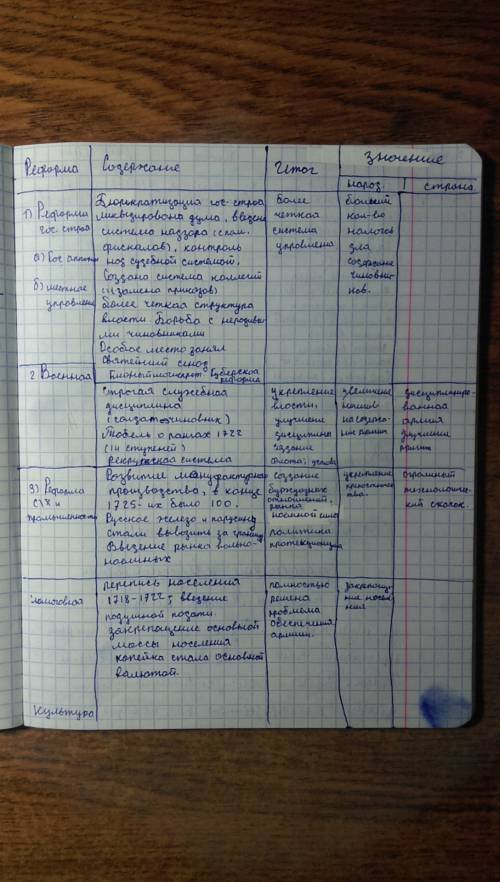 Реформа
Содержание
Итог
Значение
народ
страна
1) Реформа
гос. строя
а) Гос. аппарат
б) местное
управление
Бюрократизация гос. строя
ликвидирована дума, введена
система надзора (
фискалов), контроль
над судебной системой.
Создано система коллегий
(11 замена приказов)
более четкая структура
власти. Борьба с
чиновниками
Особое место занял
святейший синод
Губернская
реформа
более
четкая
система
управлена
больший
кол-во
налогов
содержание
чиновни-
ков.
2. Военная
строгая служебная
дисциплина
(солдат-чиновник)
Табель о рангах 1722
(14 ступеней)
рекрутская система
укрепление
власти,
улучшение
дисциплины
создание
флота
увеличение
дисциплиниро-
ванная
армия
улучшение
3) Реформа
с/х и
промышленности
Розвытие мануфактурного
производства, к концу
1725- их было 100.
Русское железо и парусину
стали вывозить за границу
Введение рынка вольно-
наемных
создание
буржуазных
отношений,
рынка
наемной силы
политика
протекционизма
укрепление
крепостниче-
ства.
огромный
технологичес-
кий скачок.
налоговая
перепись населения
1718-1722; введение
подушной подати.
закрепощение основной
массы населения
копейка стала основной
валютой.
полностью
решена
проблема
обеспечения
армии.
закрепоще-
ние насел-
ения
Культура